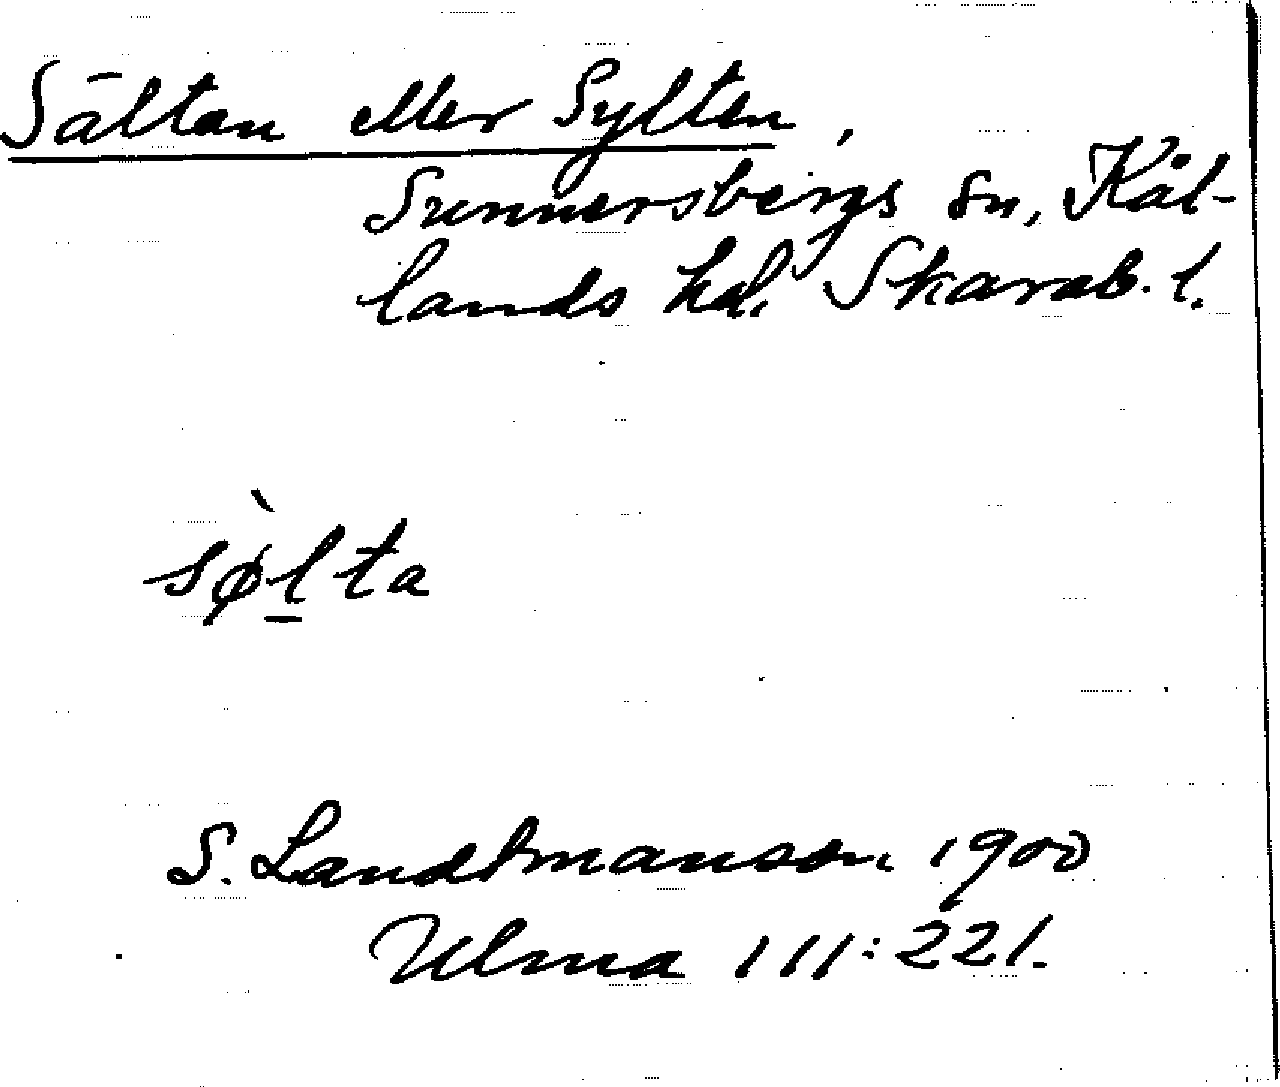 Sältan eller Sylten,
Sunnersbergs sn, Kål-
lands hd. Skarab. l.
sø̀l̲ta
S. Landtmanson 1900
Ulma 111:221.